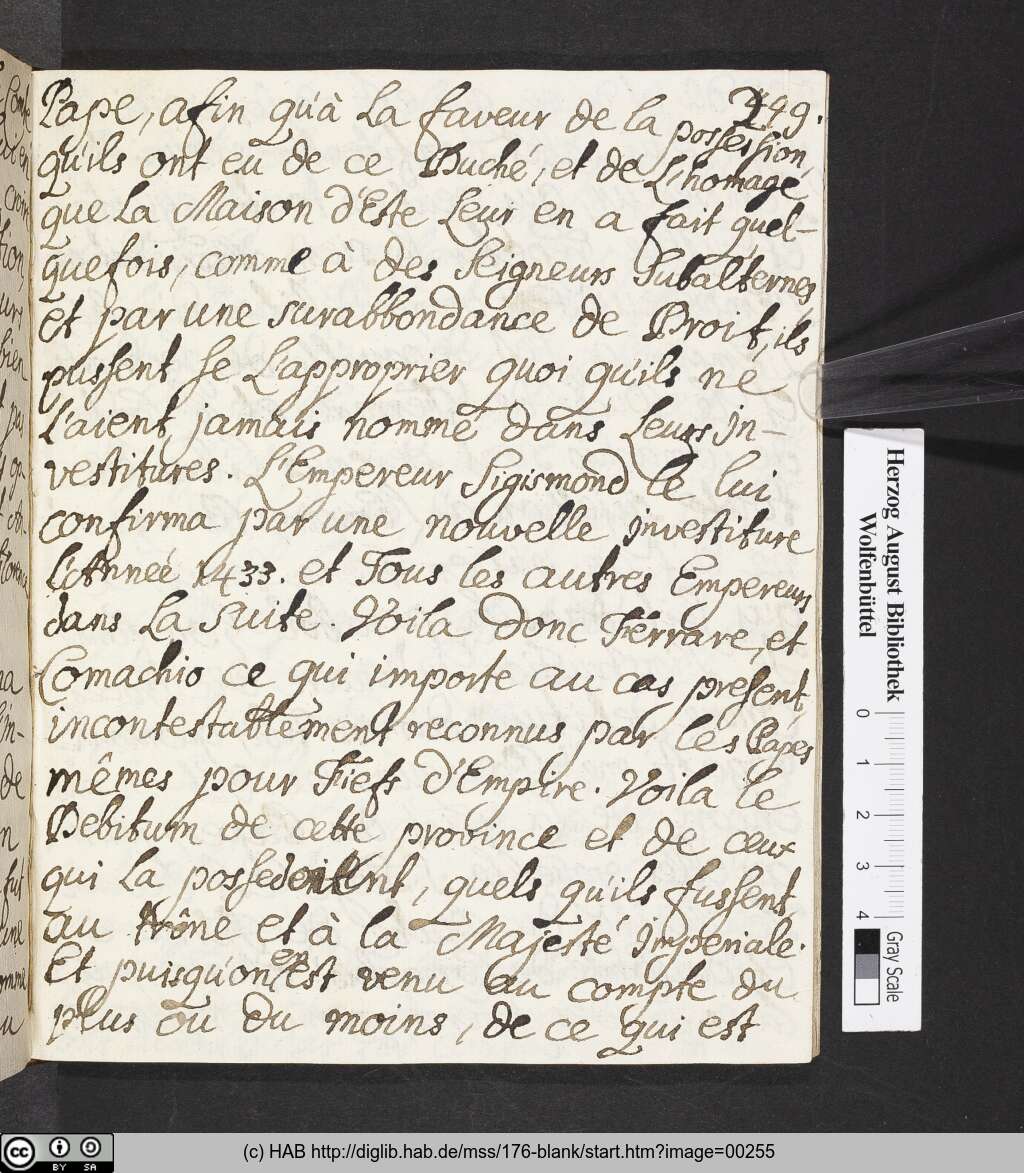 249.
Pape, afin qu'à La faveur de la possession,
qu'ils ont eu de ce Duché, et de L'homage
que La Maison d'Este Leur en a fait quel-
quefois, comme à des Seigneurs Subalternes
et par une surabbondance de Droit, ils
pussent se L'approprier quoi qu'ils ne
L'aient jamais nommé dans Leurs In-
vestitures. L'Empereur Sigismond le lui
confirma par une nouvelle investiture
L'Année 1433. et Tous les autres Empereurs
dans La suite. Voila donc Ferrare, et
Comachio ce qui importe au cas present,
incontestablement reconnus par les Papes
mêmes pour Fiefs d'Empire. Voila le
Debitum de cette province et de ceux
qui La possedent, quels qu'ils fussent,
au trône et à la Majesté Imperiale.
Et puisqu'on en est venu au compte du
plus ou du moins, de ce qui est
Herzog August Bibliothek
Wolfenbüttel
0 1 2 3 4
Gray Scale
cc BY SA
(c) HAB http://diglib.hab.de/mss/176-blank/start.htm?image=00255